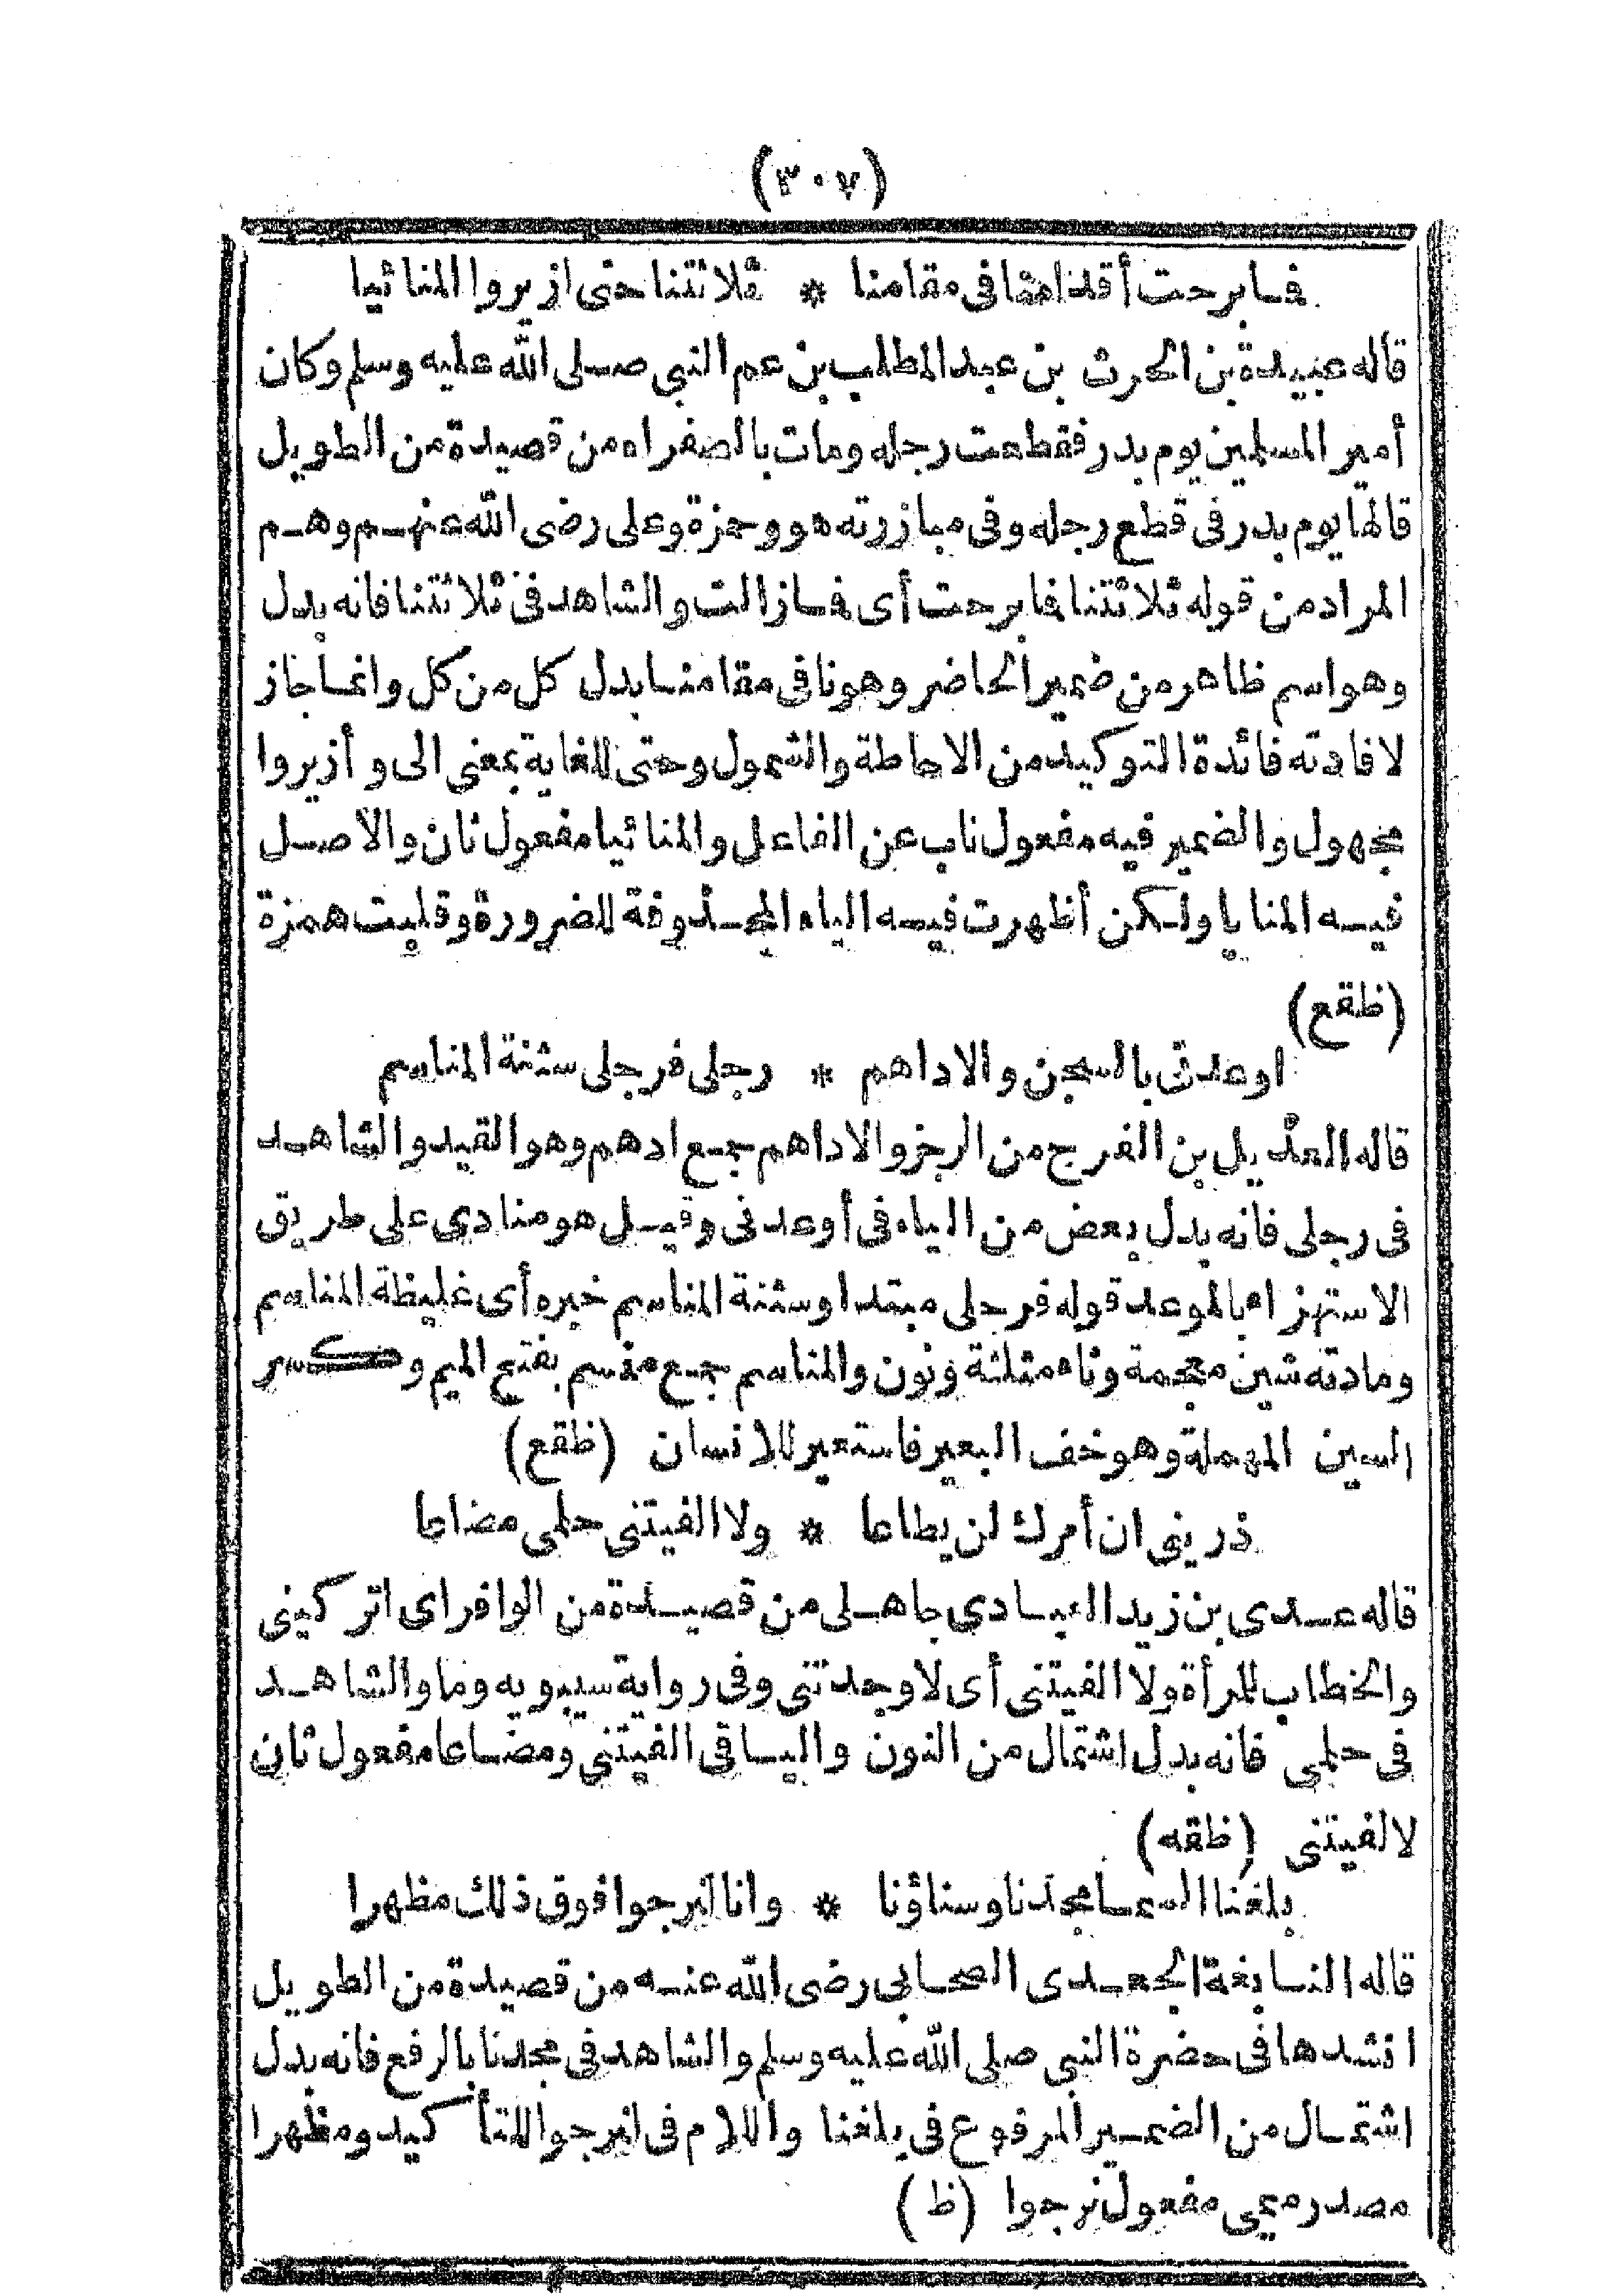 (٣٠٧)
فما برحت أقدامنا في مقامنا * ثلاثتنا حتى ازيروا المنائيا
قاله عبيدة بن الحرث بن عبد المطلب بن عم النبي صلى الله عليه وسلم وكان
أمير المسلمين يوم بدر فقطعت رجله ومات بالصفراء من قصيدة من الطويل
قالها يوم بدر في قطع رجله وفي مبازرته هو وحمزة وعلى رضى الله عنهم وهم
المراد من قوله ثلاثتنا فما برحت أى فما زالت والشاهد في ثلاثتنا فانه بدل
وهو اسم ظاهر من ضمير الحاضر وهو نا في مقامنا بدل كل من كل وانما جاز
لافادته فائدة التوكيد من الاحاطة والشمول وحتى للغاية بمعنى الى وأزيروا
مجهول والضمير فيه مفعول ناب عن الفاعل والمنائيا مفعول ثان والاصل
فيه المنايا ولكن أظهرت فيه الياء المحذوفة للضرورة وقلبت همزة
(ظقع)
اوعدني بالسجن والاداهم * رجلى فرجلى شثنة المناسم
قاله العديل بن الفرج من الرجز والاداهم جمع ادهم وهو القيد والشاهد
في رجلى فانه بدل بعض من الياء في أوعدني وقيل هو منادى على طريق
الاستهزاء بالموعد قوله فرجلى مبتدا وشثنة المناسم خبره أى غليظة المناسم
ومادته شين معجمة وثاء مثلثة ونون والمناسم جمع منسم بفتح الميم وكسر
السين المهملة وهو خف البعير فاستعير للانسان (ظقع)
ذريني ان أمرك لن يطاعا * ولا الفيتني حلمى مضاعا
قاله عدى بن زيد العبادى جاهلى من قصيدة من الوافر اى اتركيني
والخطاب للمرأة ولا الفيتني أى لا وجدتني وفي رواية سيبويه وما والشاهد
في حلمى فانه بدل اشتمال من النون واليا في الفيتني ومضاعا مفعول ثان
لالفيتني (ظقه)
بلغنا السما مجدنا وسناؤنا * وانا لنرجوا فوق ذلك مظهرا
قاله النابغة الجعدى الصحابى رضى الله عنه من قصيدة من الطويل
انشدها في حضرة النبي صلى الله عليه وسلم والشاهد في مجدنا بالرفع فانه بدل
اشتمال من الضمير المرفوع في بلغنا واللام في لنرجوا للتأكيد ومظهرا
مصدر ميمى مفعول نرجوا (ظ)